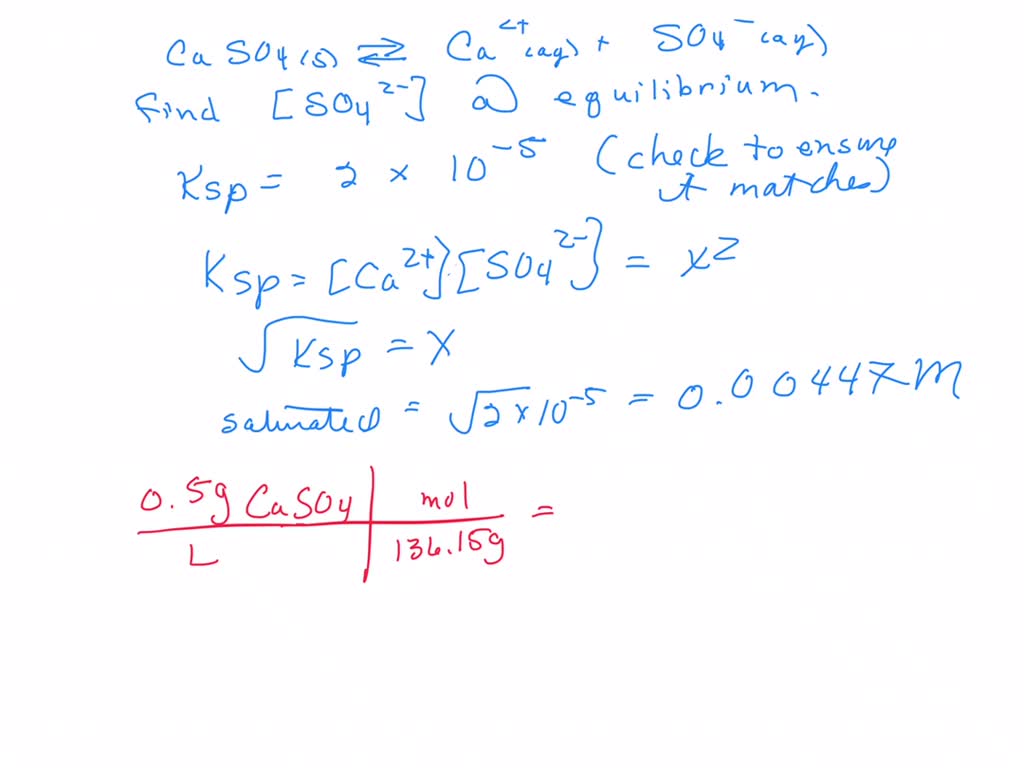 CaSO4(s) ⇌ Ca²⁺(aq) + SO4⁻(aq)
find [SO4²⁻] @ equilibrium.
Ksp = 2 × 10⁻⁵ (check to ensure
it matches)
Ksp = [Ca²⁺][SO4²⁻] = x²
√Ksp = x
saturated = √2×10⁻⁵ = 0.00447M
0.5g CaSO4 | mol =
L | 136.15g